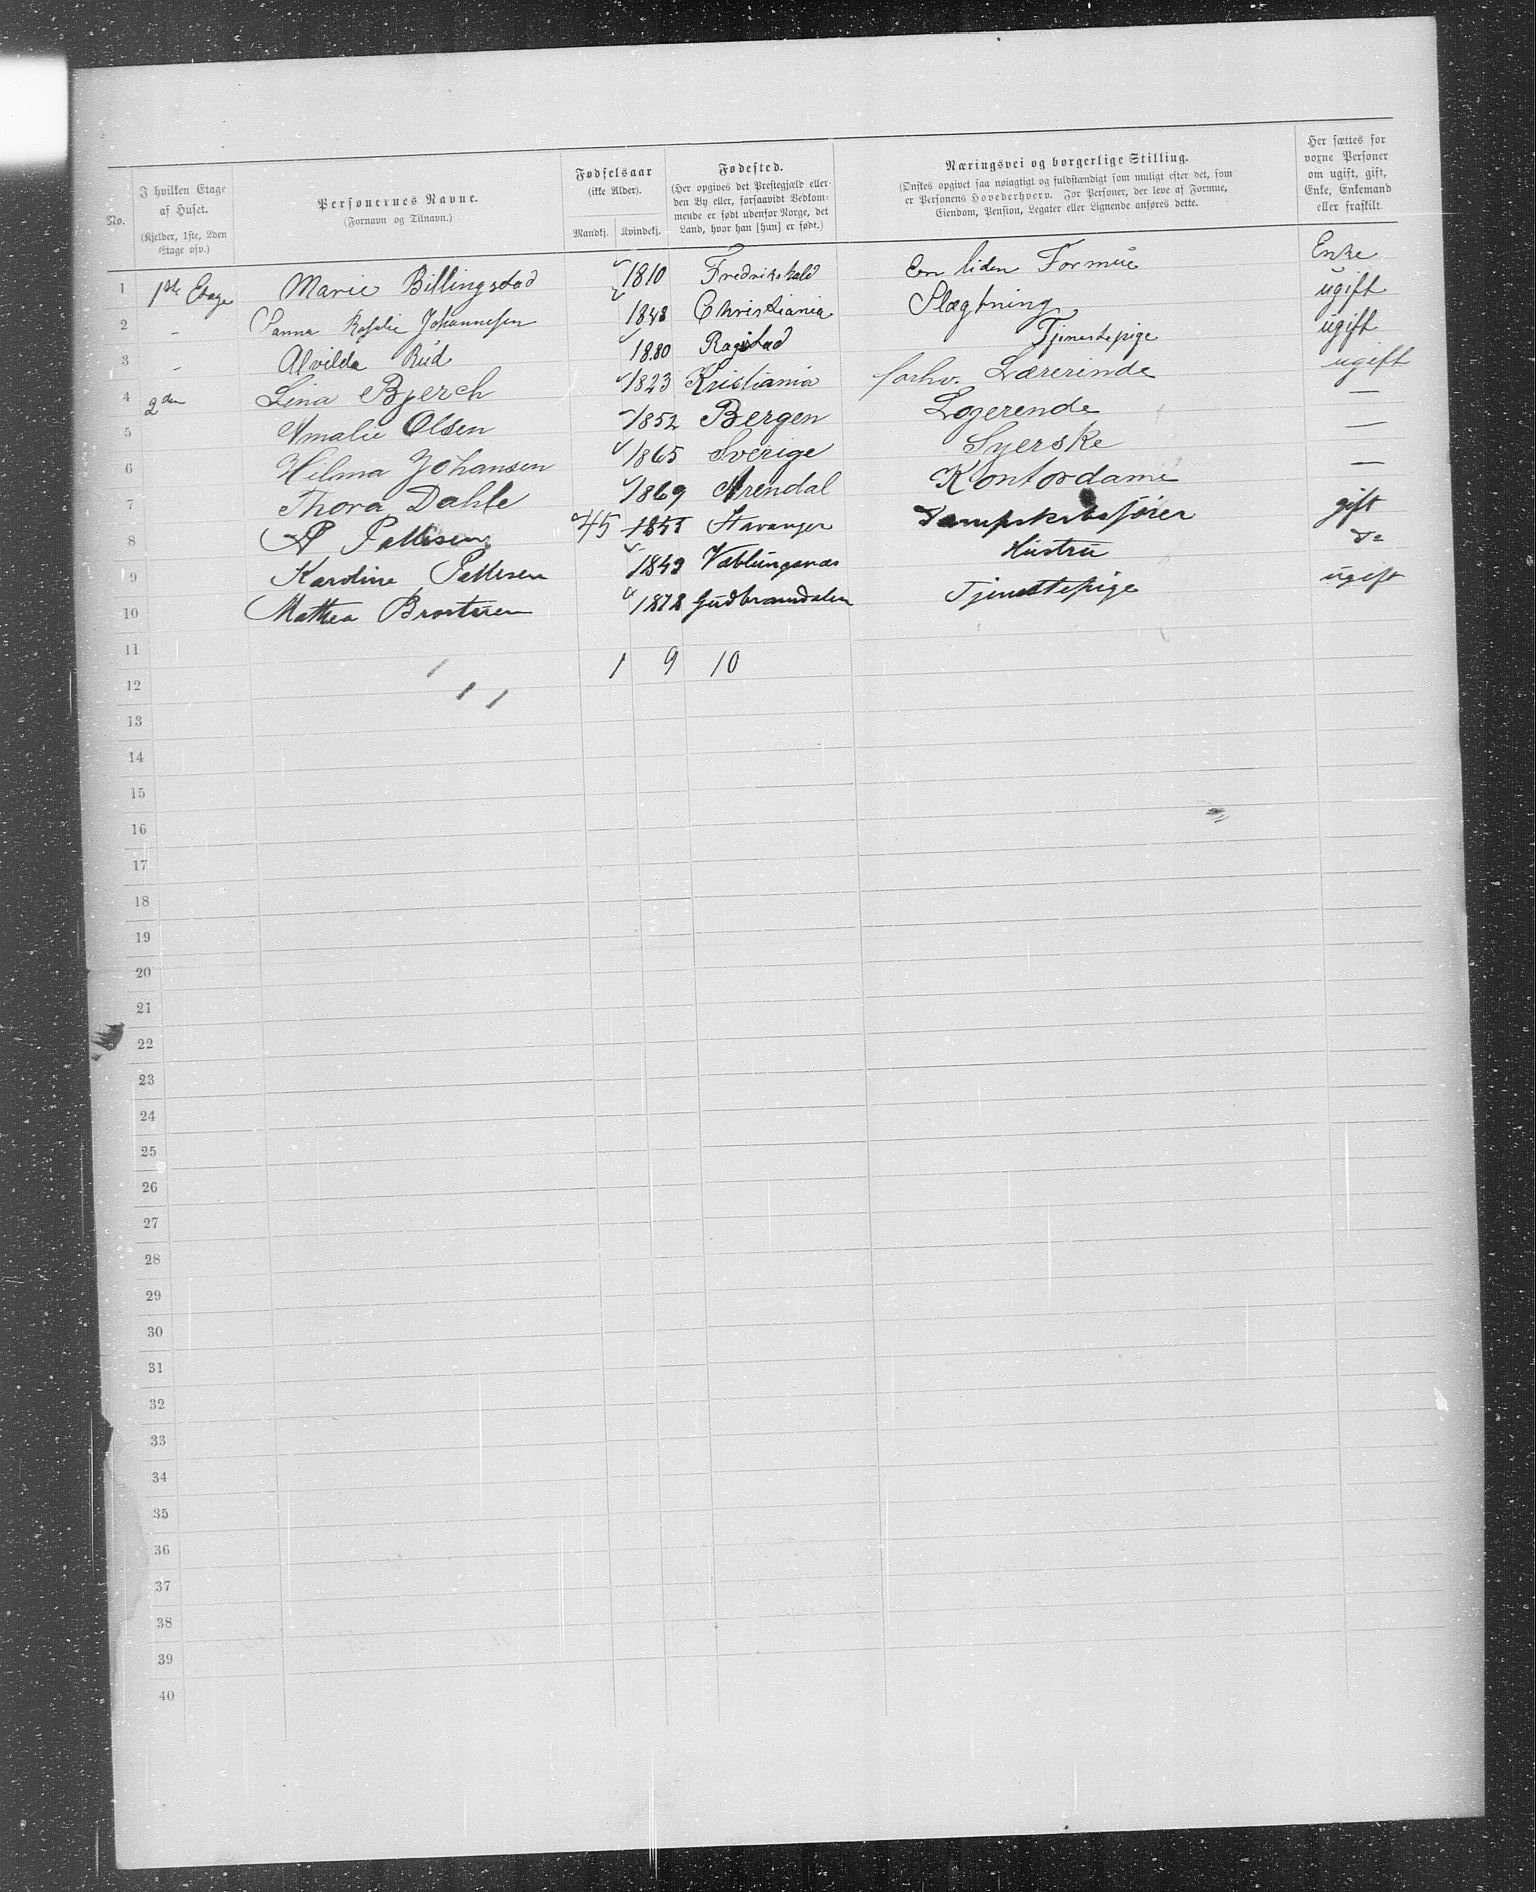 No. | I hvilken Etage af Huset. (Kjelder, 1ste, 2den Etage osv.) | Personernes Navne. (Fornavn og Tilnavn.) | Fødselsaar (ikke Alder). Mandkj. Kvindekj. | Fødested. (Her opgives det Præstegjæld eller den By eller, forsaavidt Vedkommende er født udenfor Norge, det Land, hvor han [hun] er født.) | Næringsvei og borgerlige Stilling. (Ønskes opgivet saa nøiagtigt og fuldstændigt som muligt efter det, som er Personens Hovederhverv. For Personer, der leve af Formue, Eiendom, Pension, Legater eller Lignende anføres dette.) | Her sættes for voxne Personer om ugift, gift, Enke, Enkemand eller fraskilt.
1 1ste Etage Marie Billingstad 1810 Fredrikshald En liden Formue Enke
2 - Rosalie Johannesen 1848 Christiania Slægtning ugift
3 - Alvilda Rud 1880 Tjenestepige ugift
4 2den Lina Bjerch 1823 Kristiania forhv. Lærerinde ugift
5 Amalie Olsen 1852 Bergen Logerende —
6 Hilma Johansen 1865 Sverige Syerske —
7 Thora Dahle 1869 Arendal Kontordame —
8 45 Stavanger Dampskibsfører gift
9 Karoline 1849 Væblungsnæs Hustru do
10 Mathea 1878 Gudbrandsdalen Tjenestepige ugift
11 1 9 10
12
13
14
15
16
17
18
19
20
21
22
23
24
25
26
27
28
29
30
31
32
33
34
35
36
37
38
39
40